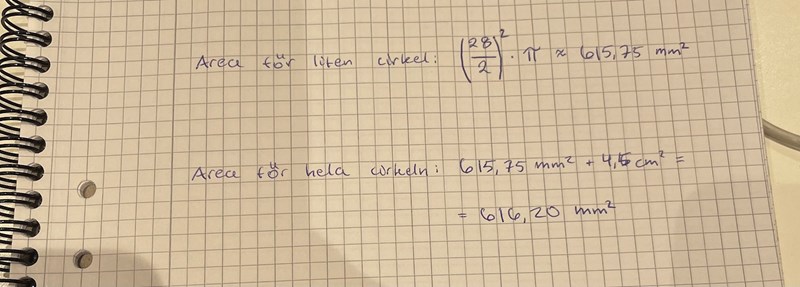 Area för liten cirkel: (28/2)² · π ≈ 615,75 mm²
Area för hela cirkeln: 615,75 mm² + 4,5 cm² =
= 616,20 mm²